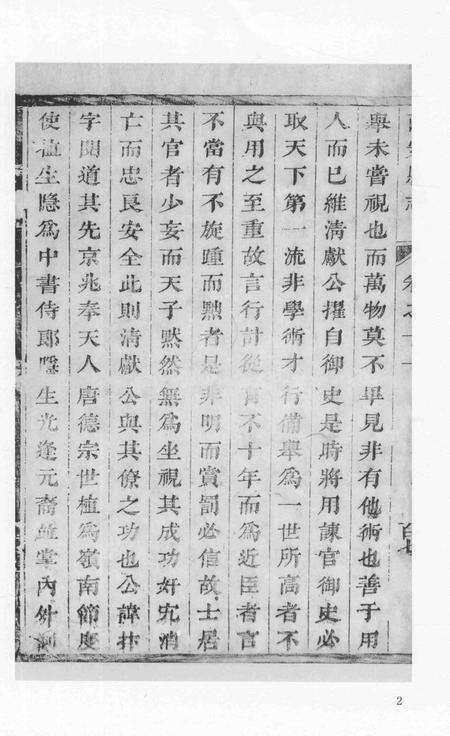 西安縣志 卷之二十
舉未嘗視也而萬物莫不畢見非有他術也善于用
人而已維清獻公擢自御史是時將用諫官御史必
取天下第一流非學術才行備舉爲一世所高者不
與用之至重故言行計從有不十年而爲近臣者言
不當有不旋踵而黜者是非明而賞罰必信故士居
其官者少妄而天子黙然無爲坐視其成功奸宄消
亡而忠良安全此則清獻公與其僚之功也公諱抃
字閱道其先京兆奉天人唐德宗世植爲嶺南節度
使植生隱爲中書侍郎隱生光逢元裔並掌內外制
2